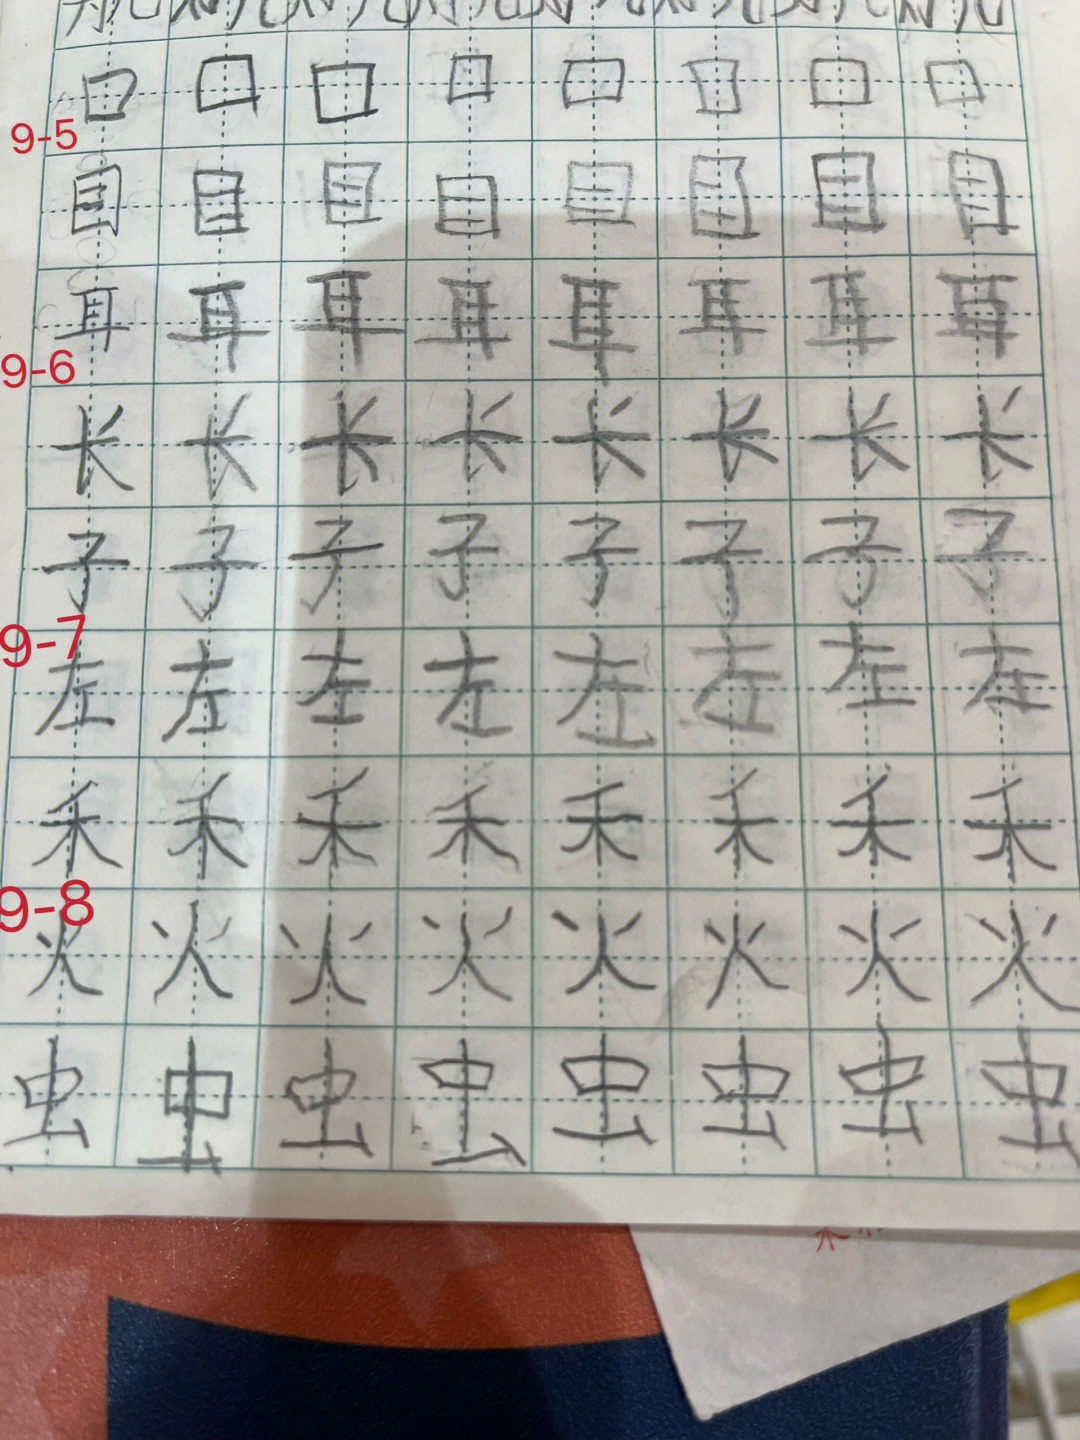 口 口 口 口 口 口 口 口
9-5
目 目 目 目 目 目 目 目
耳 耳 耳 耳 耳 耳 耳 耳
9-6
长 长 长 长 长 长 长 长
子 子 子 子 子 子 子 子
9-7
左 左 左 左 左 左 左 左
禾 禾 禾 禾 禾 禾 禾 禾
9-8
火 火 火 火 火 火 火 火
虫 虫 虫 虫 虫 虫 虫 虫